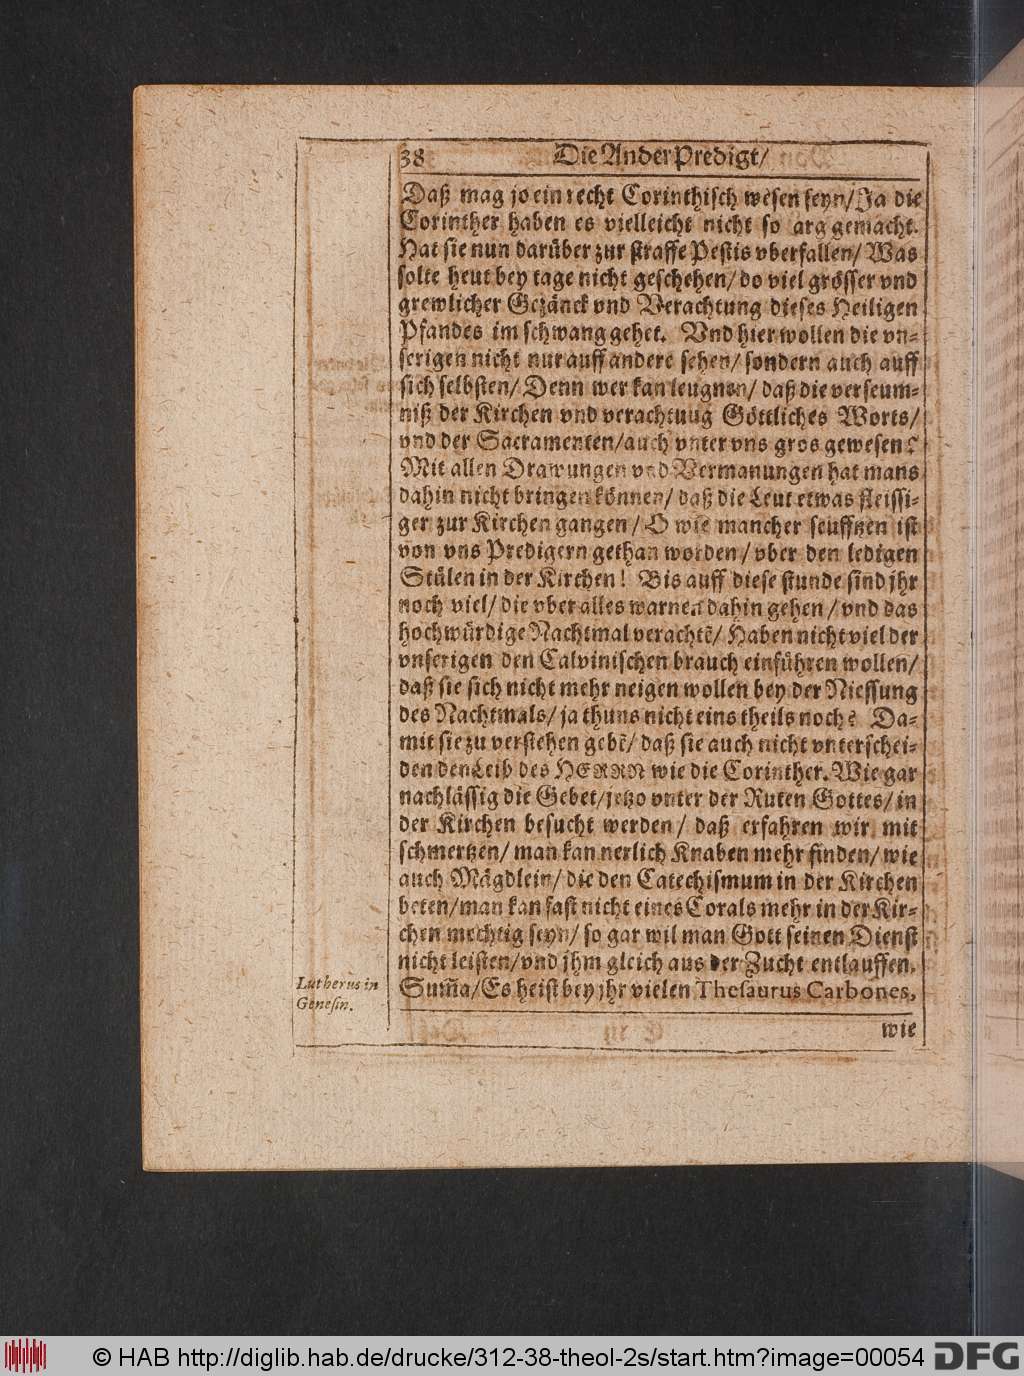 38 Die Ander Predigt/
Daß mag jo ein recht Corinthisch wesen seyn/ Ja die
Corinther haben es vielleicht nicht so arg gemacht.
Hat sie nun darüber zur straffe Pestis vberfallen/ Was
solte heut bey tage nicht geschehen/ do viel grösser vnd
grewlicher Gezänck vnd Verachtung dieses Heiligen
Pfandes im schwang gehet. Vnd hier wollen die vn-
serigen nicht nur auff andere sehen/ sondern auch auff
sich selbsten/ Denn wer kan leugnen/ daß die verseum-
niß der Kirchen vnd verachtuug Göttliches Worts/
vnd der Sacramenten/ auch vnter vns gros gewesen?
Mit allen Drawungen vnd Vermanungen hat mans
dahin nicht bringen können/ daß die Leut etwas fleissi-
ger zur Kirchen gangen/ O wie mancher seufftzen ist
von vns Predigern gethan worden/ vber den ledigen
Stülen in der Kirchen! Bis auff diese stunde sind jhr
noch viel/ die vber alles warnen dahin gehen/ vnd das
hochwürdige Nachtmal verachtē/ Haben nicht viel der
vnserigen den Calvinischen brauch einführen wollen/
daß sie sich nicht mehr neigen wollen bey der Niessung
des Nachtmals/ ja thuns nicht eins theils noch? Da-
mit sie zu verstehen gebē/ daß sie auch nicht vnterschei-
den den Leib des HERRN wie die Corinther. Wie gar
nachlässig die Gebet/ jetzo vnter der Ruten Gottes/ in
der Kirchen besucht werden/ daß erfahren wir mit
schmertzen/ man kan nerlich Knaben mehr finden/ wie
auch Mägdlein/ die den Catechismum in der Kirchen
beten/ man kan fast nicht eines Corals mehr in der Kir-
chen mechtig seyn/ so gar wil man Gott seinen Dienst
nicht leisten/ vnd jhm gleich aus der Zucht entlauffen.
Lutherus in
Genesin.
Sum̃a/ Es heist bey jhr vielen Thesaurus Carbones,
wie
© HAB http://diglib.hab.de/drucke/312-38-theol-2s/start.htm?image=00054
DFG